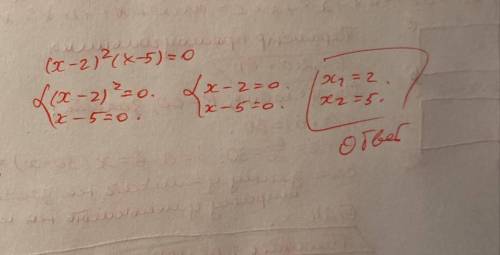 (x-2)²(x-5)=0
{(x-2)²=0.
x-5=0.
{x-2=0.
x-5=0.
x₁=2.
x₂=5.
Ответ